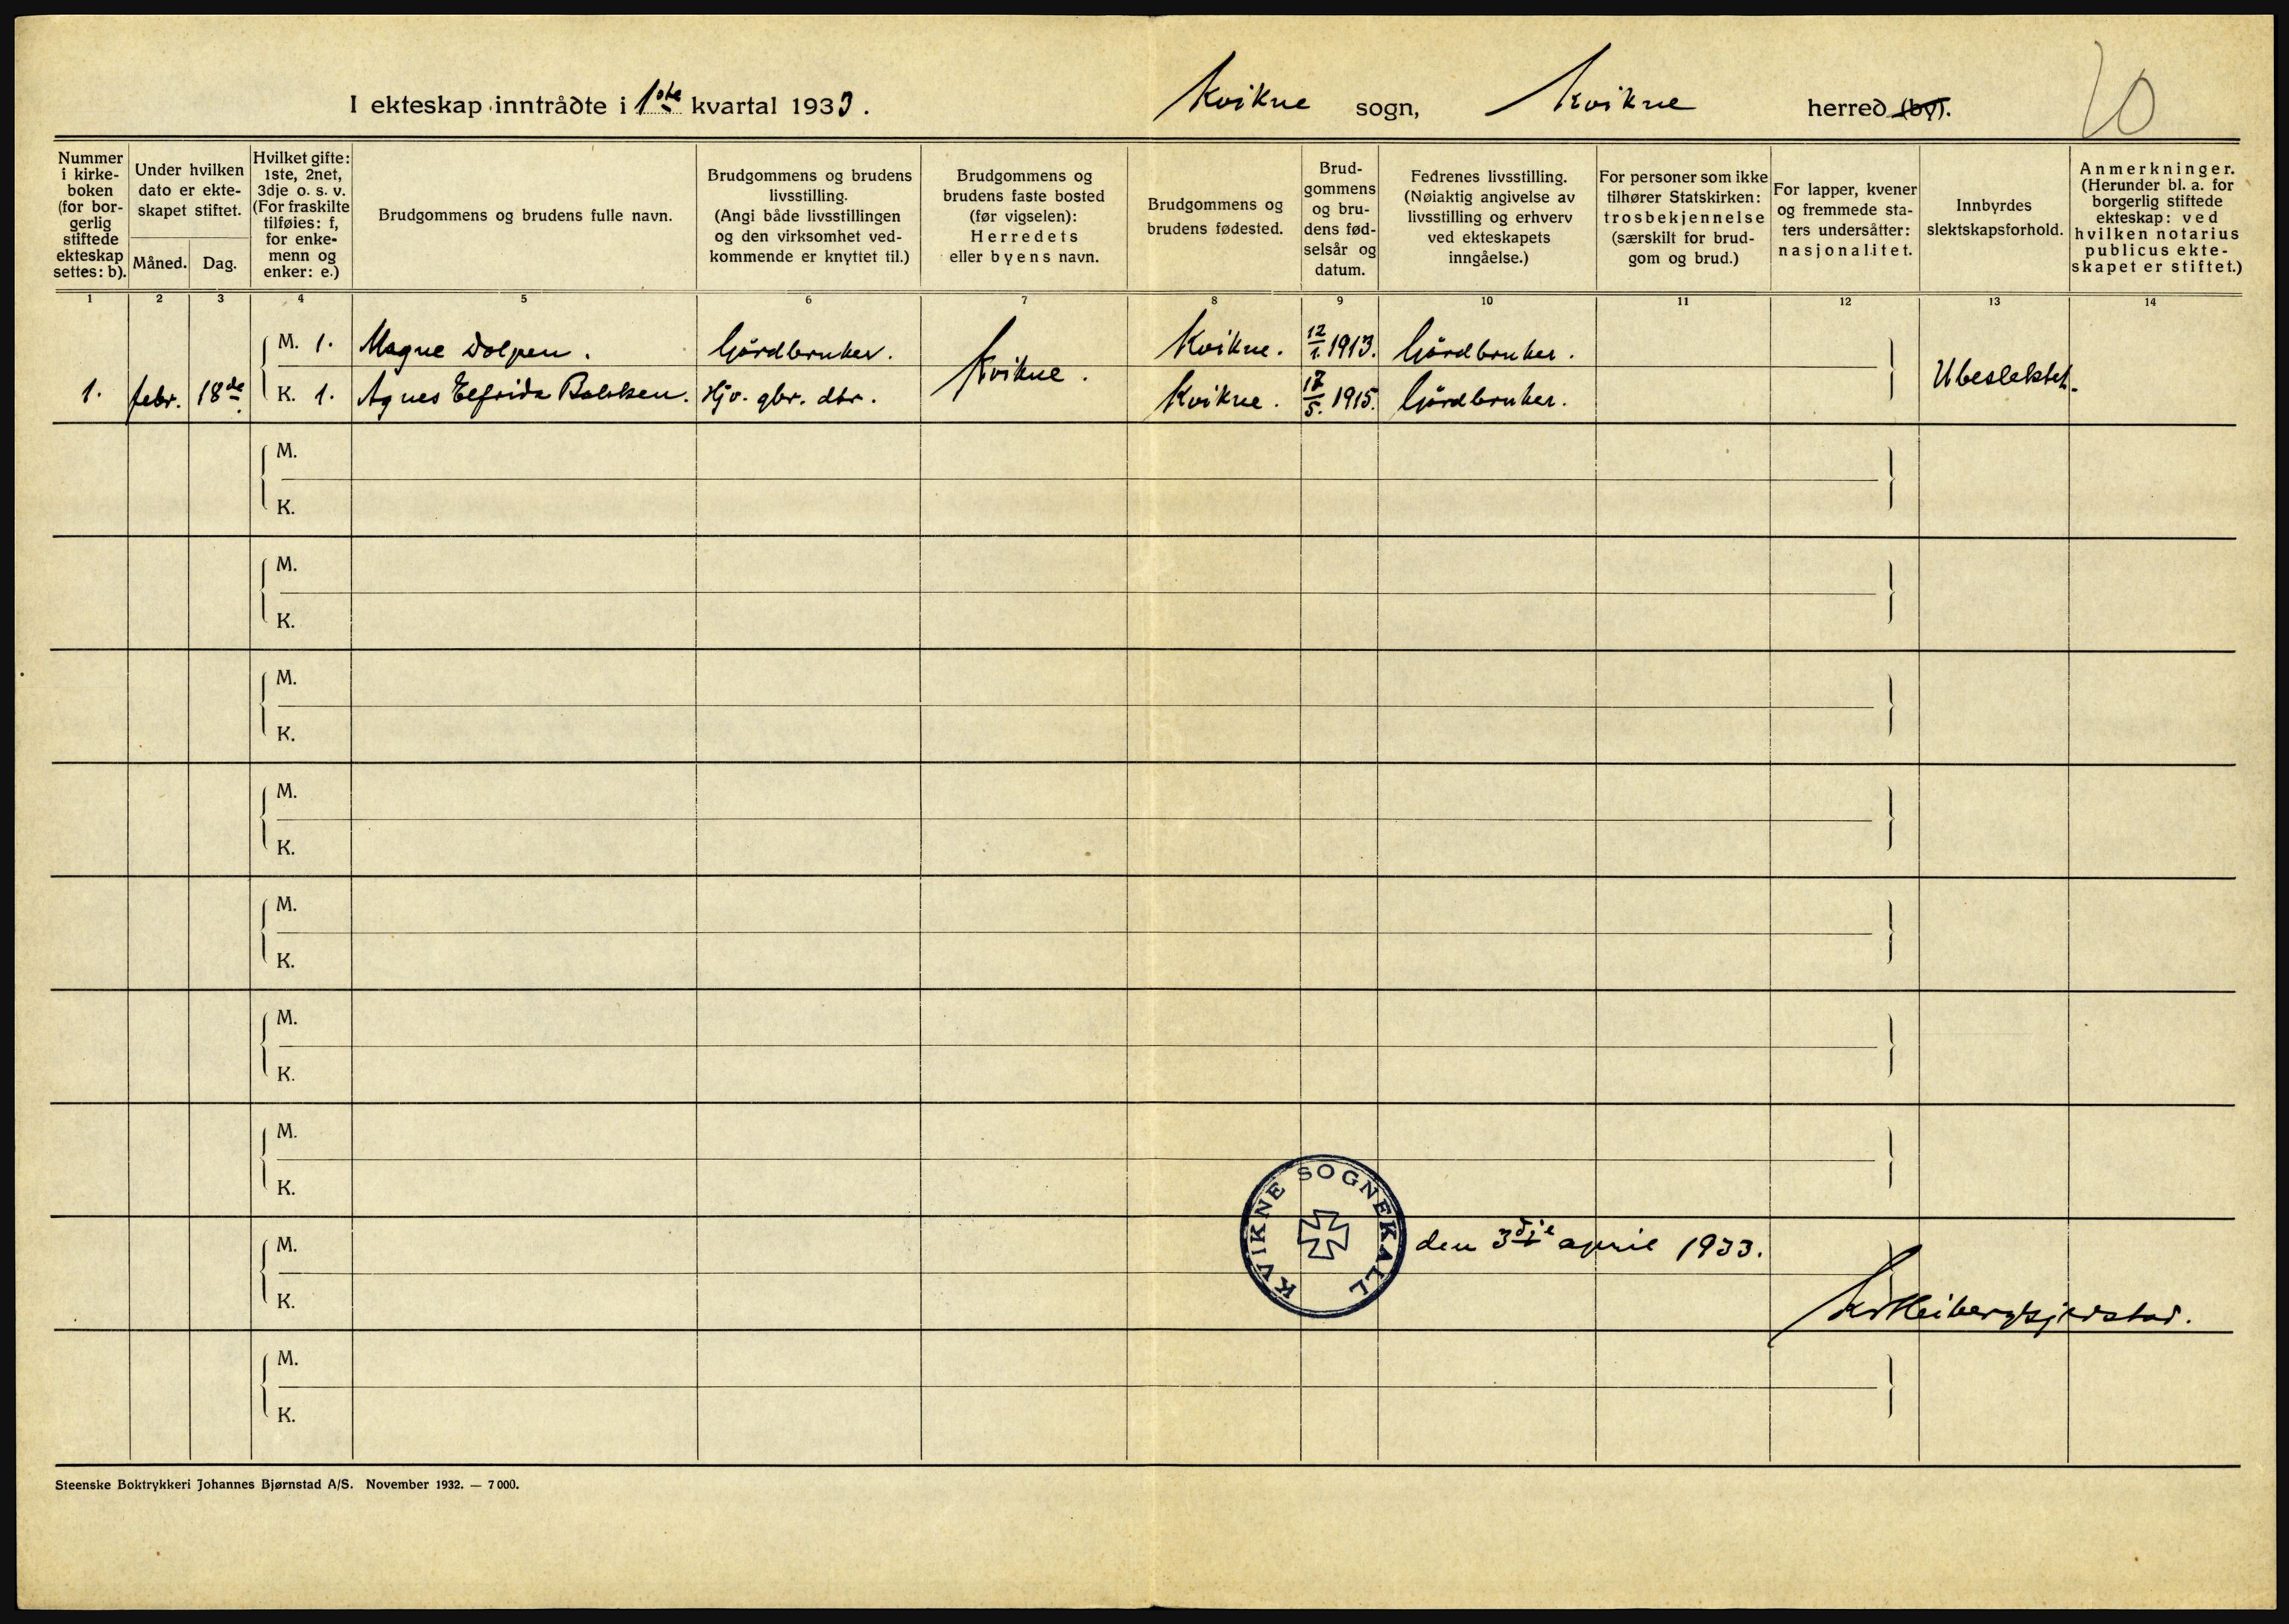 I ekteskap inntrådte i 1ste kvartal 1933. Kvikne sogn, Kvikne herred (by). 20
Nummer i kirke-boken (for bor-gerlig stiftede ekteskap settes: b).
Under hvilken dato er ekte-skapet stiftet.
Måned.
Dag.
Hvilket gifte: 1ste, 2net, 3dje o. s. v. (For fraskilte tilføies: f, for enke-menn og enker: e.)
Brudgommens og brudens fulle navn.
Brudgommens og brudens livsstilling. (Angi både livsstillingen og den virksomhet ved-kommende er knyttet til.)
Brudgommens og brudens faste bosted (før vigselen): Herredets eller byens navn.
Brudgommens og brudens fødested.
Brud-gommens og bru-dens fød-selsår og datum.
Fedrenes livsstilling. (Nøiaktig angivelse av livsstilling og erhverv ved ekteskapets inngåelse.)
For personer som ikke tilhører Statskirken: trosbekjennelse (særskilt for brud-gom og brud.)
For lapper, kvener og fremmede sta-ters undersåtter: nasjonalitet.
Innbyrdes slektskapsforhold.
Anmerkninger. (Herunder bl. a. for borgerlig stiftede ekteskap: ved hvilken notarius publicus ekte-skapet er stiftet.)
1 2 3 4 5 6 7 8 9 10 11 12 13 14
M. 1. Magne Dolpen. Gårdbruker. Kvikne. 12/1. 1913. Gårdbruker.
Kvikne. Ubeslektet.
1. febr. 18de K. 1. Agnes Elfrida Hjv. gbr. dtr. Kvikne. 17/5. 1915. Gårdbruker.
M.
K.
M.
K.
M.
K.
M.
K.
M.
K.
M.
K.
M.
K.
KVIKNE SOGNEKALL
M. den 3dje april 1933.
K.
M.
K.
Steenske Boktrykkeri Johannes Bjørnstad A/S. November 1932. — 7000.